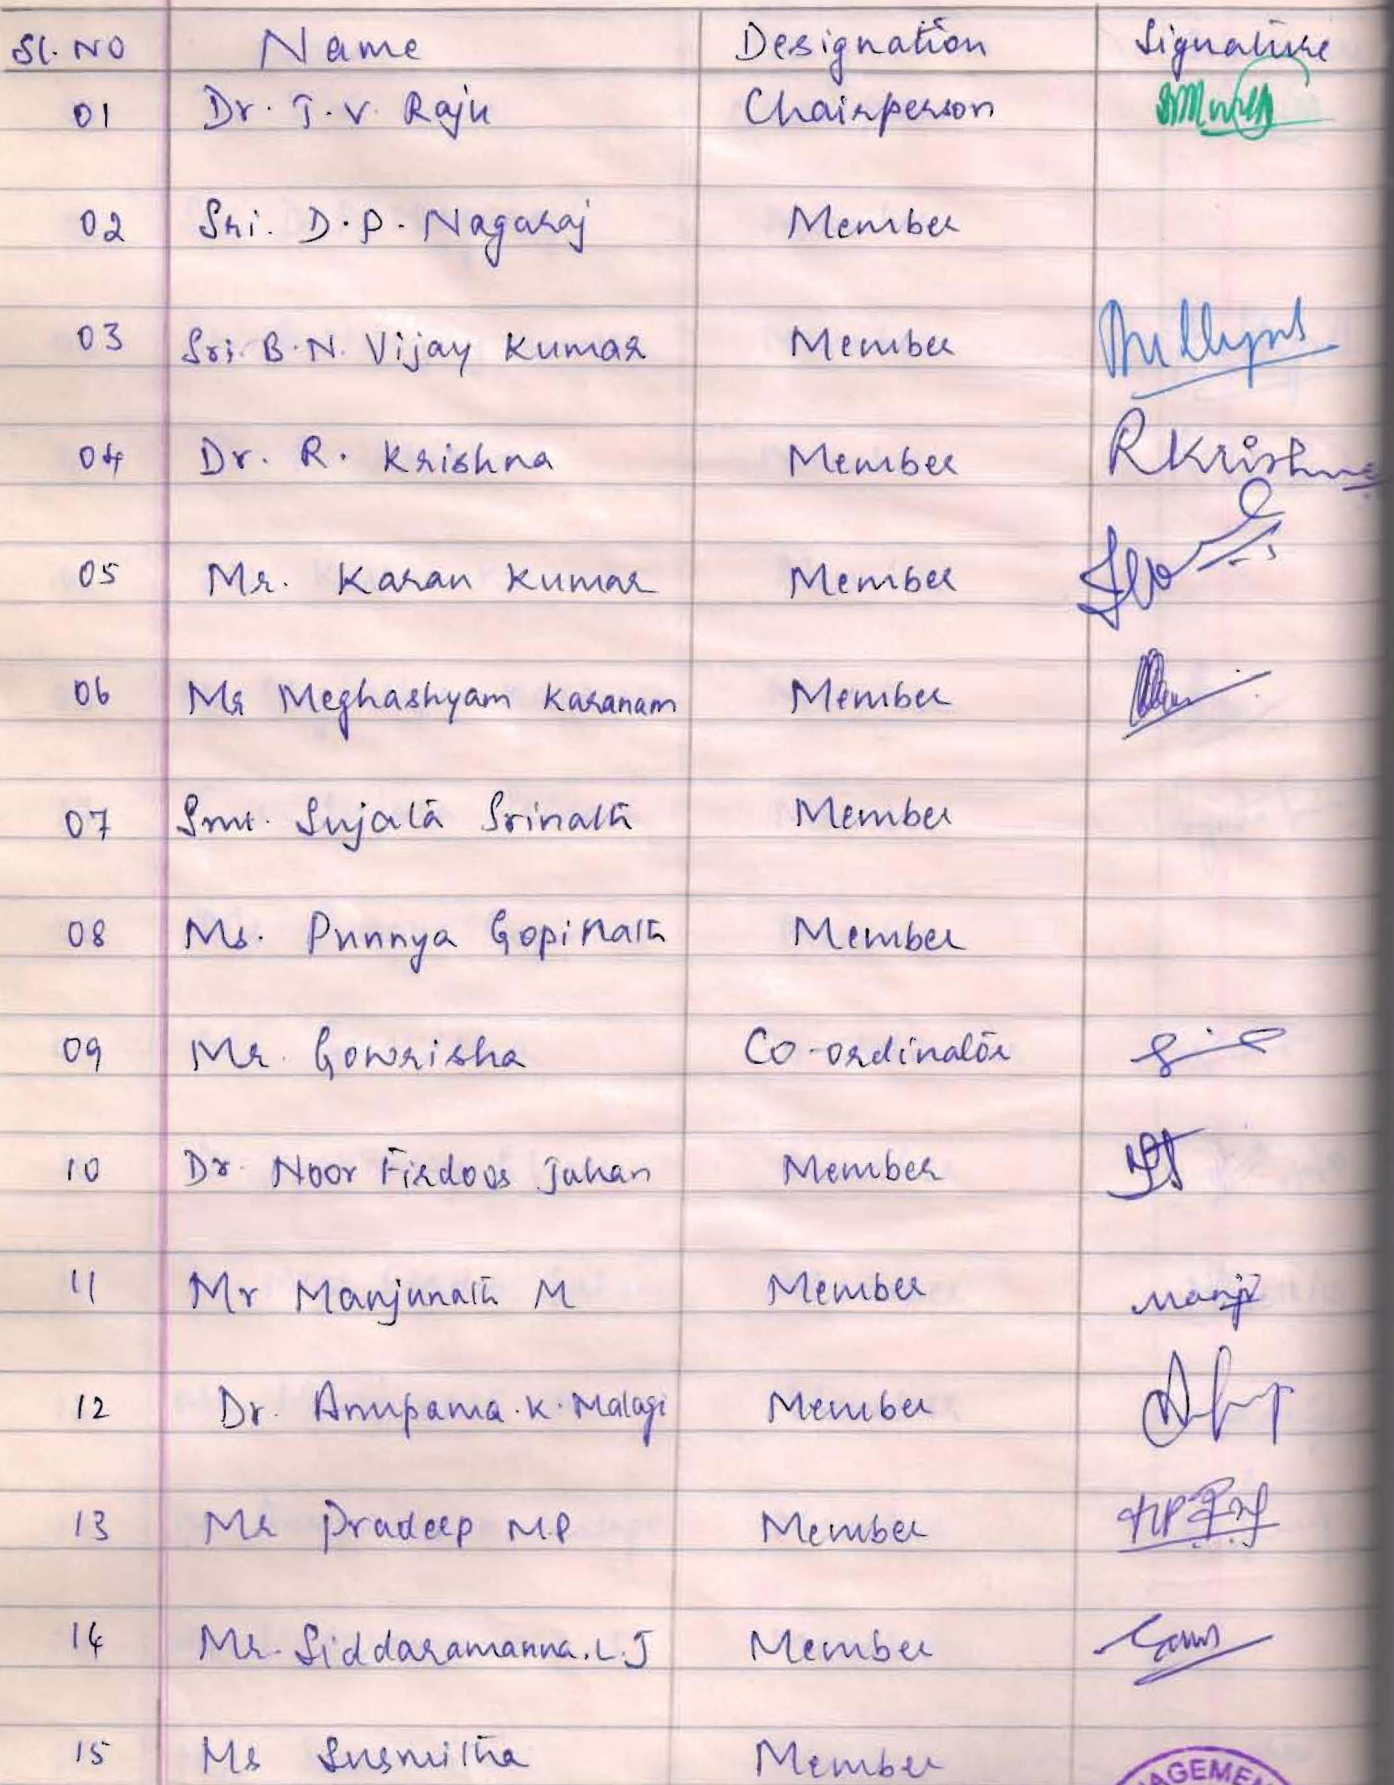 Sl. No Name Designation Signature
01 Dr. T. V. Raju Chairperson
02 Sri. D. P. Nagaraj Member
03 Sri. B. N. Vijay Kumar Member
04 Dr. R. Krishna Member R Krishna
05 Mr. Karan Kumar Member
06 Mr Meghashyam Karanam Member
07 Smt. Sujata Srinath Member
08 Ms. Punnya Gopinath Member
09 Mr. Gowrisha Co-ordinator
10 Dr. Noor Firdoos Jahan Member
11 Mr Manjunath M Member
12 Dr. Anupama. K. Malagi Member
13 Mr Pradeep M.P Member
14 Mr. Siddaramanna. L. J Member
15 Ms Susmitha Member